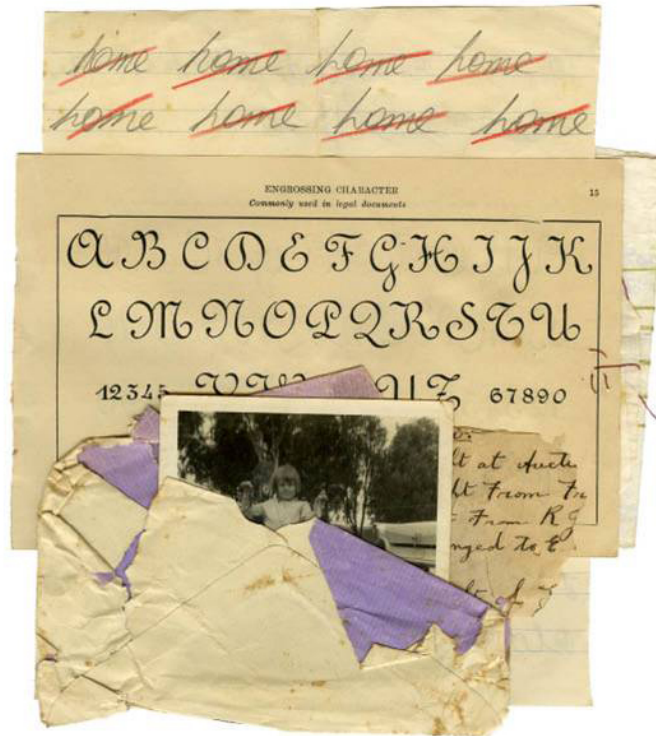 home home home home
home home home home
ENGROSSING CHARACTER 15
Commonly used in legal documents
A B C D E F G H I J K
L M N O P Q R S T U
12345 Z 67890
at Auctn
From
From R G
nged to E.